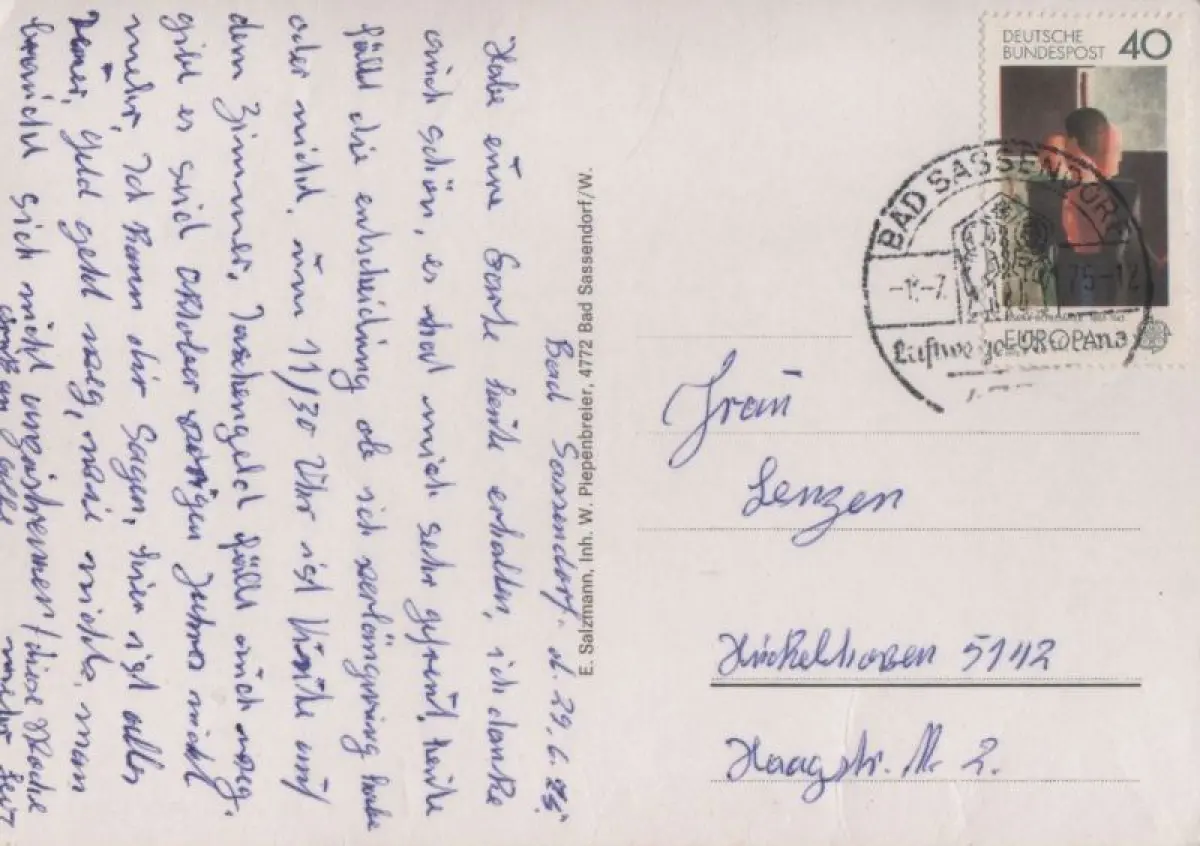 Bad Sassendorf. d. 29.6.75
Habe eure Karte heute erhalten, ich danke
auch schön, es hat mich sehr gefreut, heute
fällt die entscheidung ob ich verlängerung habe
oder nicht, um 11/30 Uhr ist Visite auf
dem Zimmer, Taschengeld fällt auch weg,
gibt es seid oktober vorigen Jahres nicht
mehr, Ich kann dir Sagen, hier ist alles
Teuer, geld geht weg, wie nichts, man
braucht sich nicht anzustrennen, diese Woche
E. Salzmann, Inh. W. Piepenbreier, 4772 Bad Sassendorf/W.
DEUTSCHE
BUNDESPOST 40
EUROPA
BAD SASSENDORF
-1.-7. 75-12
Frau
Lenzen
Hückelhoven 5142
Haagstr. N. 2.